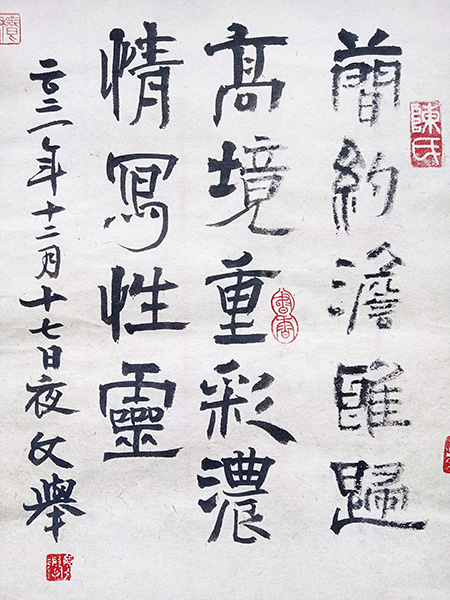 簡約澹雅歸
髙境重彩濃
情寫性靈
二〇二一年十二月十七日夜文舉
陳氏
書香